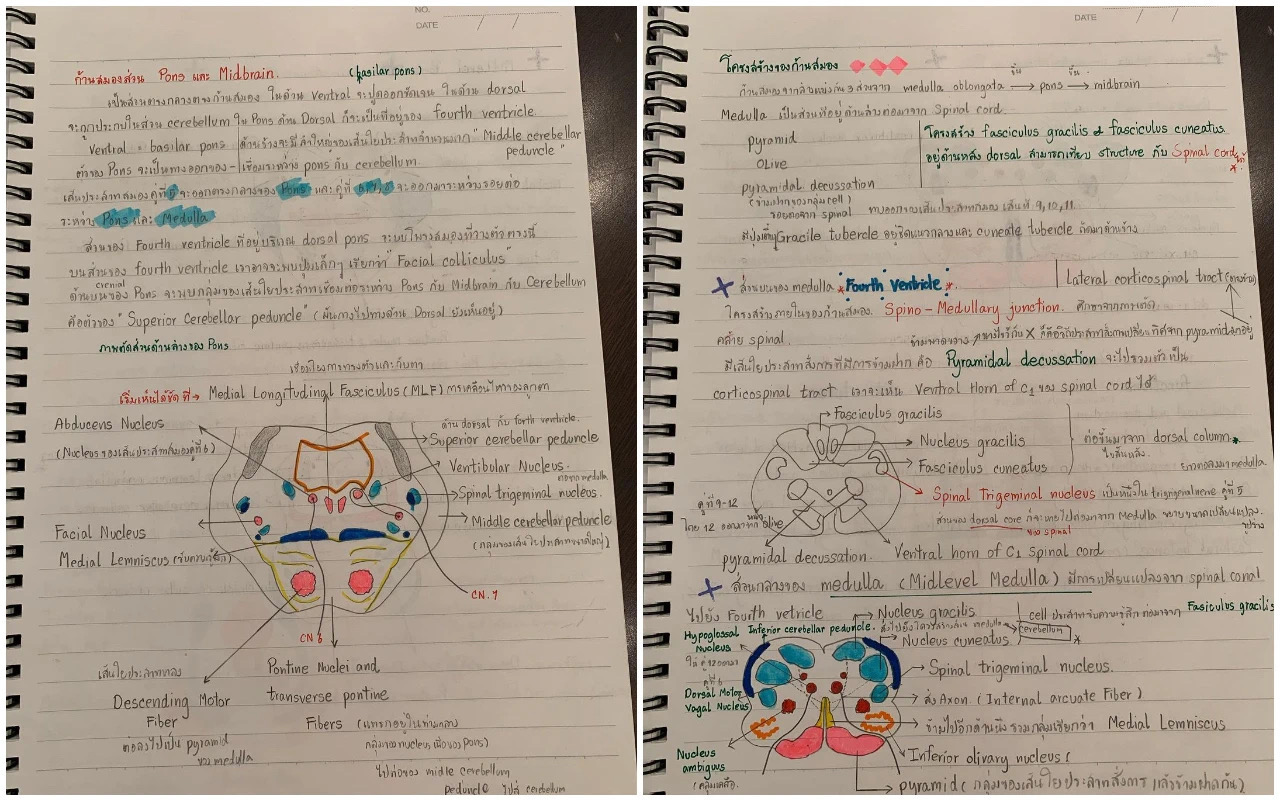 NO.
DATE
ก้านสมองส่วน Pons และ Midbrain.
(basilar pons)
เป็นส่วนตรงกลางของก้านสมอง ในด้าน ventral จะปูดออกชัดเจน ในด้าน dorsal
จะถูกประกบในส่วน cerebellum ใน Pons ด้าน Dorsal ก็จะเป็นที่อยู่ของ fourth ventricle
Ventral : basilar pons ด้านข้างจะมีลำใหญ่ของเส้นใยประสาทจำนวนมาก "Middle cerebellar
peduncle"
ตัวของ Pons จะเป็นทางออกของ - เชื่อมระหว่าง pons กับ cerebellum
เส้นประสาทสมองคู่ที่ 5 จะออกตรงกลางของ Pons และ คู่ที่ 6,7,8 จะออกมาระหว่างรอยต่อ
ระหว่าง Pons และ Medulla
ส่วนของ Fourth ventricle ที่อยู่บริเวณ dorsal pons จะพบโพรงสมองที่วางตัวตรงนี้
บนส่วนของ fourth ventricle เราอาจจะพบปุ่มเล็กๆ เรียกว่า Facial colliculus
ด้านบนของ Pons จะพบกลุ่มของเส้นใยประสาทเชื่อมต่อระหว่าง Pons กับ Midbrain กับ Cerebellum
คือตัวของ "Superior Cerebellar peduncle" (ผ่านทางไปทางด้าน Dorsal ยังเห็นอยู่)
ภาพตัดส่วนด้านล่างของ Pons
เริ่มเห็นได้ชัด ที่→ Medial Longitudinal Fasciculus (MLF) การเคลื่อนไหวของลูกตา
Abducens Nucleus
(Nucleus ของเส้นประสาทสมองคู่ที่ 6)
ด้าน dorsal กับ forth ventricle.
Superior cerebellar peduncle
Ventibular Nucleus
Spinal trigeminal nucleus.
Middle cerebellar peduncle
(กลุ่มของเส้นใยประสาทขนาดใหญ่)
Facial Nucleus
Medial Lemniscus (รับความรู้สึก)
CN. 7
CN 6
เส้นใยประสาทกลาง
Descending Motor
Fiber
ต่อลงไปเป็น pyramid
ของ medulla
Pontine Nuclei and
transverse pontine
Fibers (แทรกอยู่ในท่ามกลาง
กลุ่มของ nucleus เนื้อของ Pons)
ไปก่อของ midle cerebellum
peduncle ไปสู่ cerebellum
DATE
โครงสร้างของก้านสมอง
ก้านสมองจากล่างแบ่งเป็น 3 ส่วนจาก medulla oblongata ขึ้น→ pons ขึ้น→ midbrain
Medulla เป็นส่วนที่อยู่ด้านล่างต่อมาจาก Spinal cord.
pyramid
OLive
pyramidal decussation
(ข้างฝากของกลุ่ม cell)
รอยต่อจาก spinal ทางออกของเส้นประสาทสมอง เส้นที่ 9,10,11
โครงสร้าง fasciculus gracilis & fasciculus cuneatus
อยู่ด้านหลัง dorsal สามารถเทียบ structure กับ Spinal cord ได้
มีปุ่มชื่อ Gracile tubercle อยู่ชิดแนวกลางและ cuneate tubercle ถัดมาด้านข้าง
ส่วนบนของ medulla *Fourth Ventricle*
Lateral corticospinal tract (ทางด้านข้าง)
โครงสร้างภายในของก้านสมอง Spino - Medullary junction. ศึกษาจากการตัด
คล้าย spinal.
มีเส้นใยประสาทสั่งการที่มีการข้ามฝาก คือ Pyramidal decussation จะไปรวมตัวเป็น
corticospinal tract เราจะเห็น Ventral Horn of C1 ของ spinal cord ได้
Fasciculus gracilis
Nucleus gracilis
Fasciculus cuneatus
ก่อขึ้นมาจาก dorsal column
ไขสันหลัง.
ยาวตลอดแนว medulla
Spinal Trigeminal nucleus เป็นหนึ่งใน trigeminal nerve คู่ที่ 5
คู่ที่ 9-12
โดย 12 ออกมาจาก olive
pyramidal decussation. Ventral horn of C1 Spinal cord
ส่วนกลางของ medulla (Midlevel Medulla) มีการเปลี่ยนแปลงจาก spinal canal
ไปยัง Fourth vetricle
Nucleus gracilis
cell ประสาทรับความรู้สึก ต่อมาจาก Fasiculus gracilis
Hypoglossal
Nucleus
Inferior cerebellar peduncle.
cerebellum
Nucleus cuneatus
Spinal trigeminal nucleus.
Dorsal Motor
Vagal Nucleus
ส่ง Axon (Internal arcuate Fiber)
ข้ามไปอีกด้านนึง รวมกลุ่มเรียกว่า Medial Lemniscus
Nucleus
ambiguus
Inferior olivary nucleus
pyramid (กลุ่มของเส้นใยประสาทสั่งการ แล้วข้ามฝากกัน)